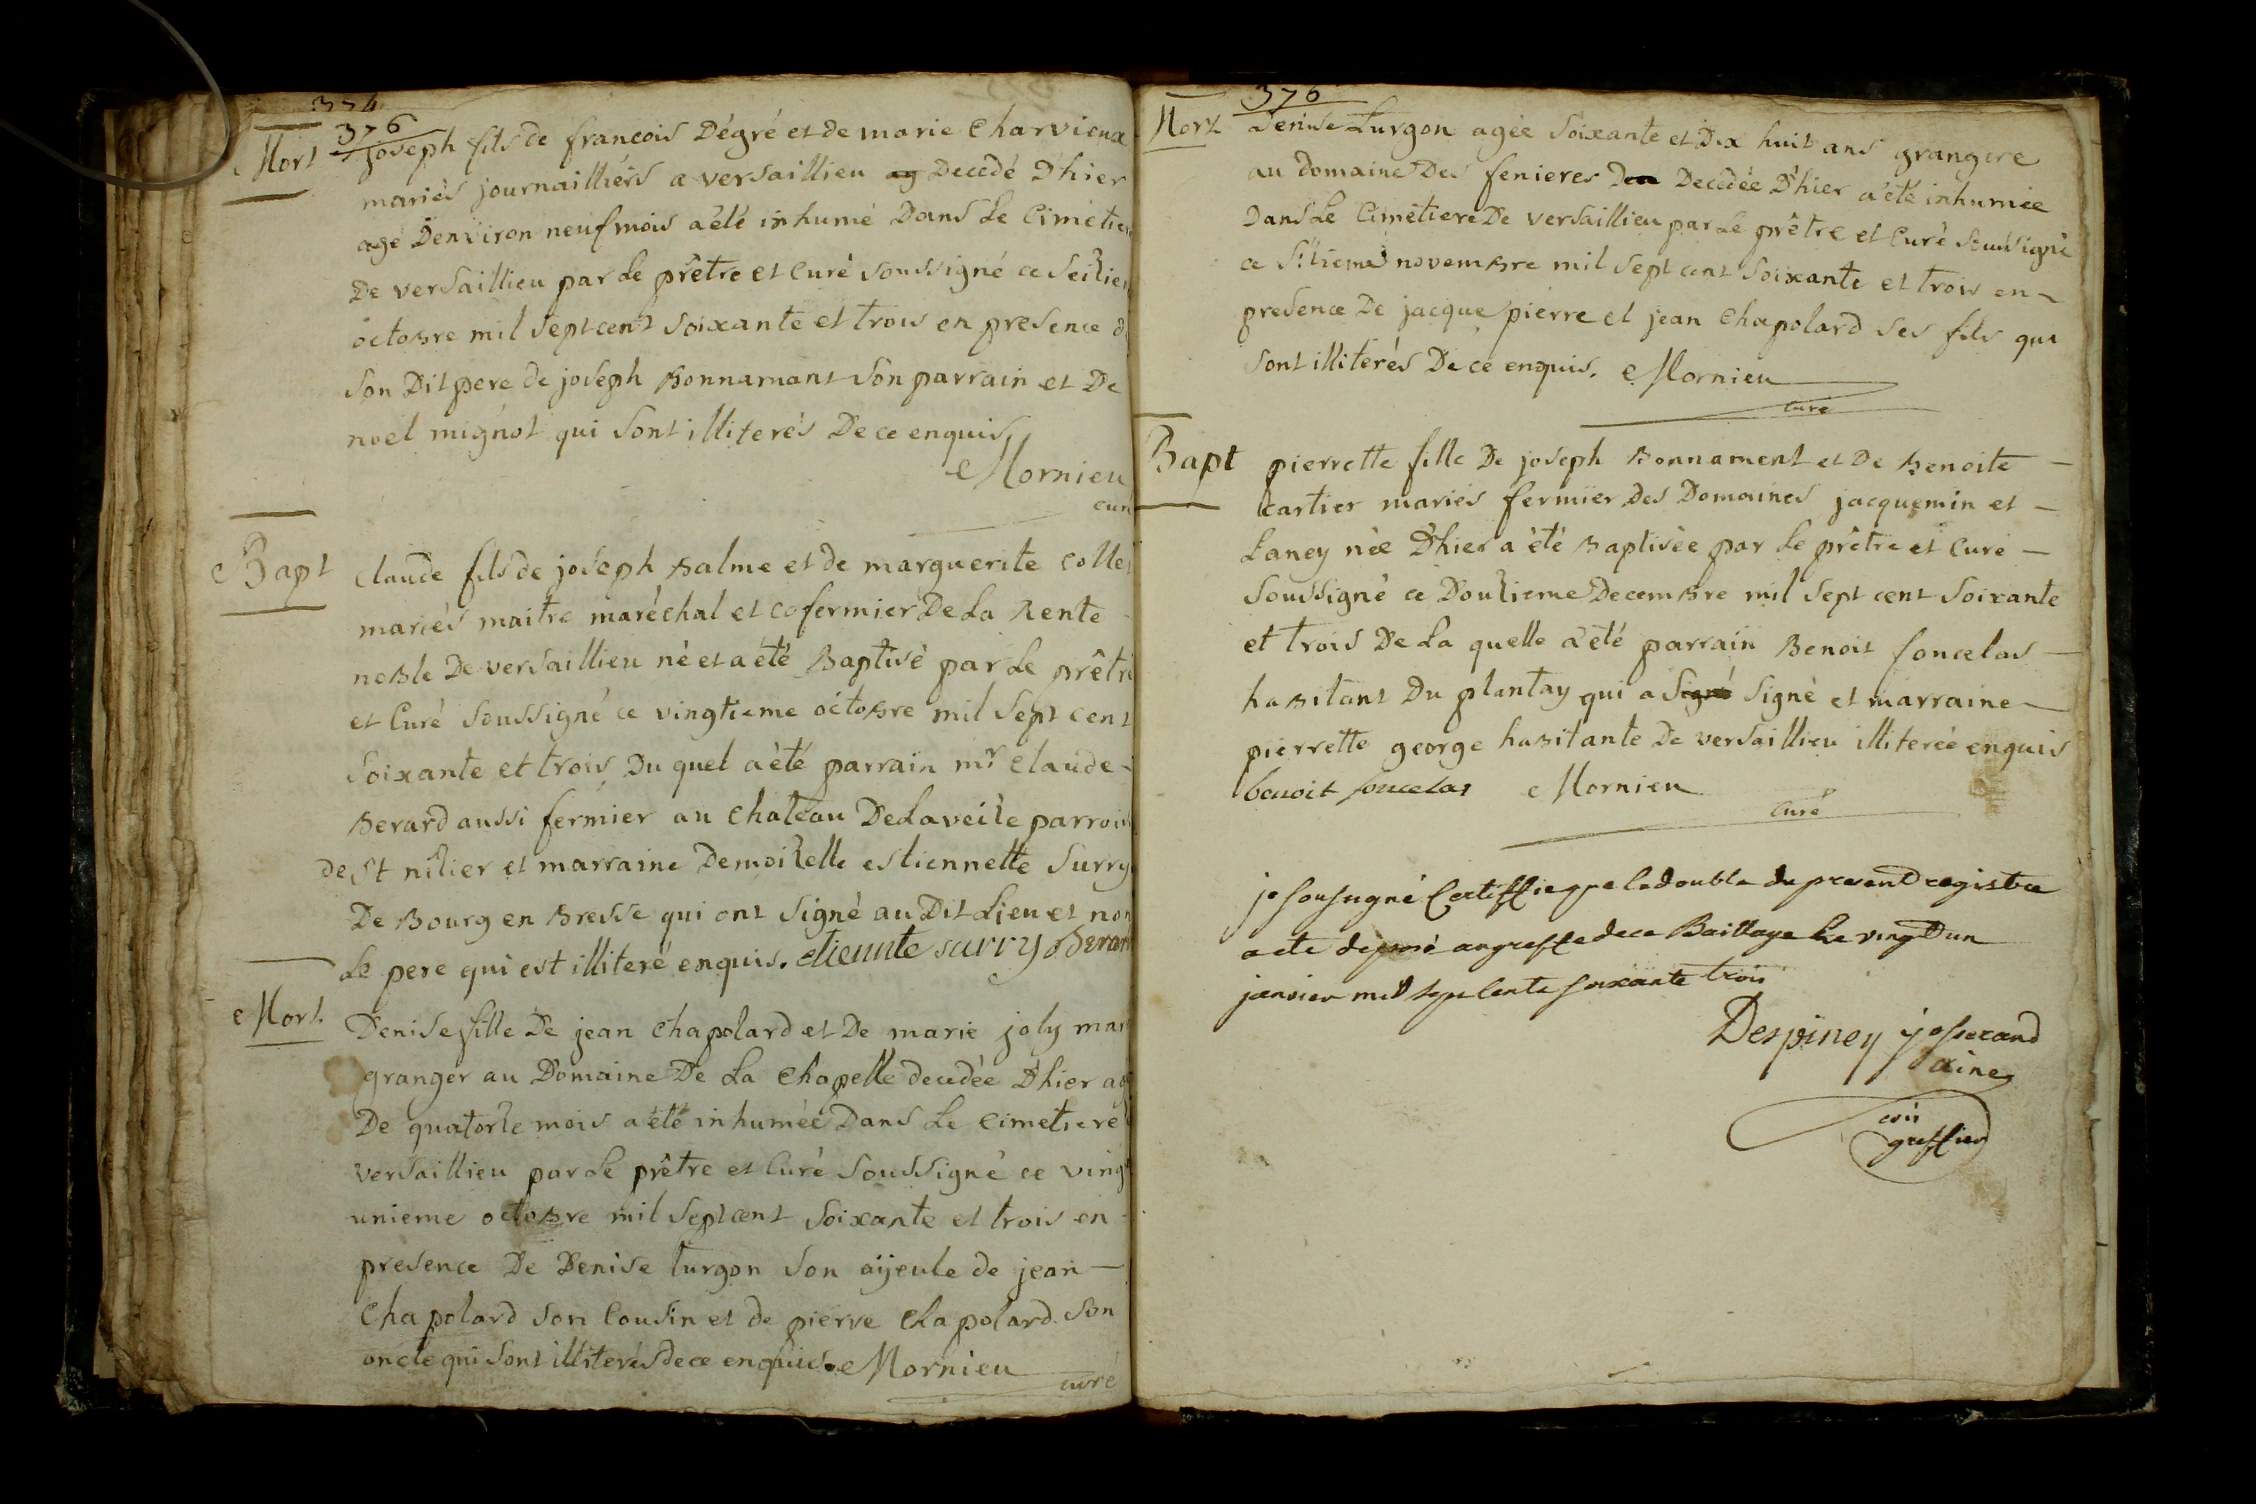 374
376
Mort
joseph fils de francois Dégré et de marie Charvieux
mariés journailliérs a versaillieu ag Decedé D'hier
agé D'environ neuf mois a été inhumé Dans Le Cimétier
De versaillieu par Le prêtre et Curé soussigné ce seiziem
octobre mil sept cent soixante et trois en presence d
son Dit pere de joseph Bonnamant son parrain et De
noel mignot qui sont illiterés De ce enquis
Mornieu
cur
Bapt
Claude fils de joseph Balme et de marguerite Collet
mariés maitre maréchal et cofermier De La Rente
noble De versaillieu né et a été Baptisé par Le prêtre
et Curé soussigné ce vingtieme octobre mil sept cent
soixante et trois Du quel a été parrain mr Claude
Berard aussi fermier au Chateau De La veile parrois
de st nizier et marraine Demoizelle estiennette surry
De Bourg en Bresse qui ont signé au Dit Lieu et non
Le pere qui est illiteré enquis. etiennte surry Berard
Mort.
Denise fille De jean Chapolard et De marie joly mar
granger au Domaine De La Chapelle decedée D'hier ag
De quatorze mois a été inhumée Dans Le Cimetiere
versaillieu par Le prêtre et Curé soussigné ce vingt
unieme octobre mil sept cent soixante et trois en
presence De Denise turgon son ayeule de jean
Chapolard son Cousin et de pierre Chapolard son
oncle qui sont illiterés de ce enquis. Mornieu
curé
376
Mort
Denise Turgon agée soixante et Dix huit ans grangere
au Domaine Des fenieres Decedée D'hier a été inhumée
Dans Le Cimétiere De versaillieu par Le prêtre et Curé soussigné
ce novembre mil sept cent soixante et trois en
presence De jacque pierre et jean Chapolard ses fils qui
sont illiterés De ce enquis. Mornieu
curé
Bapt
pierrette fille De joseph Bonnament et De Benoite
Cartier mariés fermier Des Domaines jacquemin et
Laney née D'hier a été Baptisée par Le prêtre et Curé
soussigné ce Douzieme Decembre mil sept cent soixante
et trois De La quelle a été parrain Benoit foncelas
habitant Du plantay qui a signé signé et marraine
pierrette george habitante De versaillieu illiterée enquis
benoit foncelas Mornieu
Curé
je sousigné Certiffie que le double du present registre
a ete deposé au greffe de ce Baillage Le vingt un
janvier mil sept cents soixante trois
Despiney josserand
aine
greffier